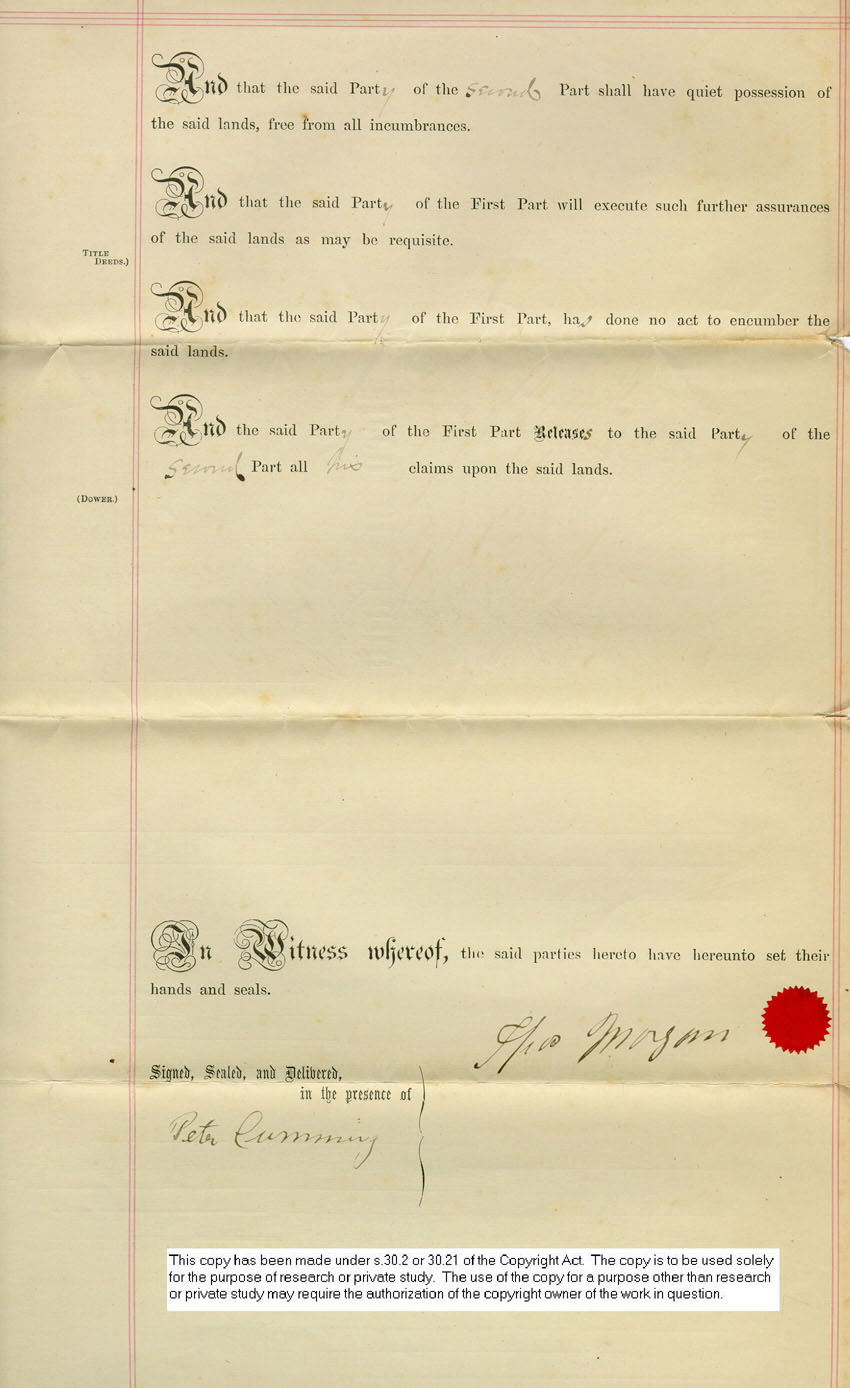 And that the said Party of the Second Part shall have quiet possession of
the said lands, free from all incumbrances.
And that the said Party of the First Part will execute such further assurances
of the said lands as may be requisite.
TITLE
DEEDS.)
And that the said Party of the First Part, has done no act to encumber the
said lands.
And the said Party of the First Part Releases to the said Party of the
Second Part all his claims upon the said lands.
(DOWER.)
In Witness whereof, the said parties hereto have hereunto set their
hands and seals.
Thos Morgan
Signed, Sealed, and Delivered,
in the presence of
Peter Cumming
This copy has been made under s.30.2 or 30.21 of the Copyright Act. The copy is to be used solely
for the purpose of research or private study. The use of the copy for a purpose other than research
or private study may require the authorization of the copyright owner of the work in question.